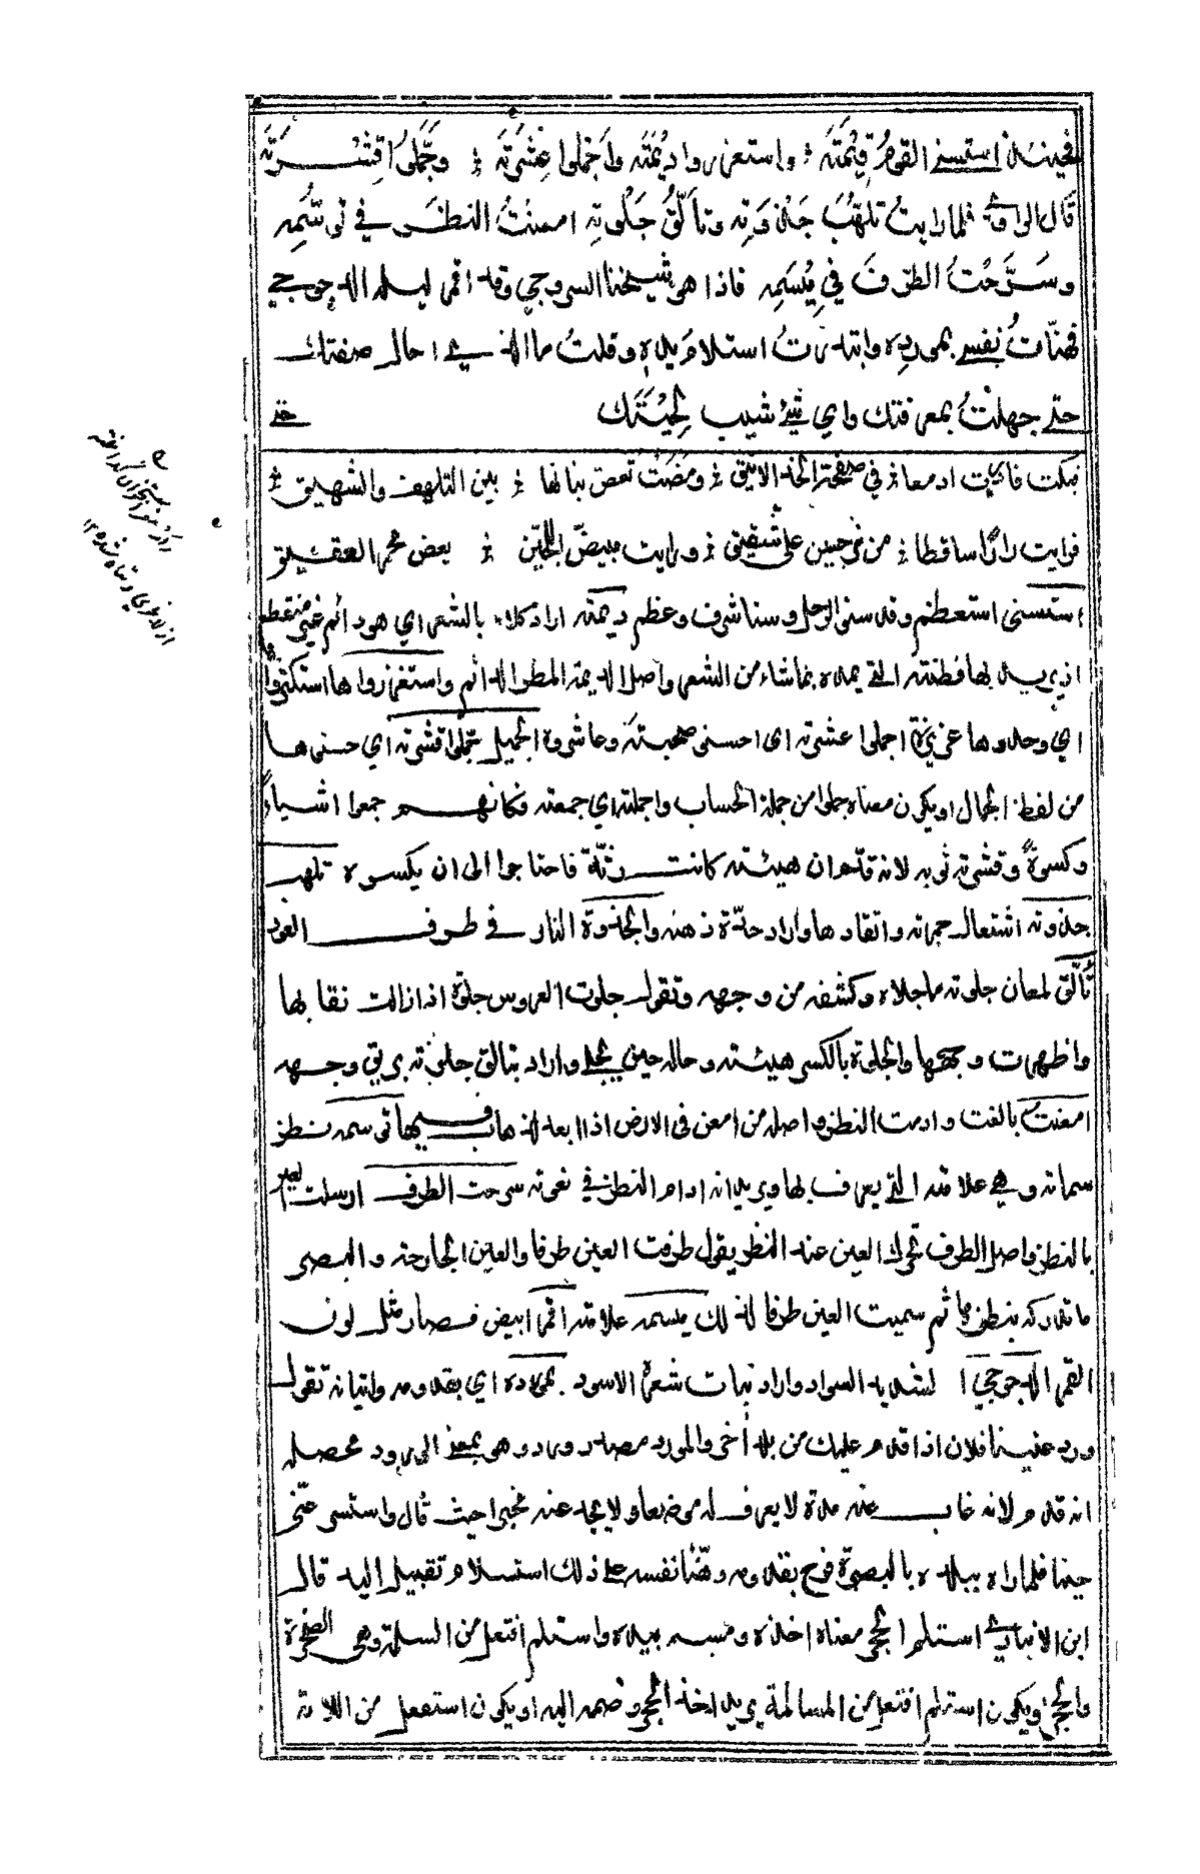 فحينئذ استسنى القوم قيمته ؛ واستغزروا ديمته واجملوا عشرته ؛ وجملوا قشرته
قال الراوي فلما رايت تلهب جذوته وتألق جلوته امعنت النظر في توسمه
وسرحت الطرف في ميسمه فاذا هو شيخنا السروجي وقد اقمر ليله الدجوجي
فهنأت نفسي بمورده وابتدرت استلام يده وقلت ما الذي احال صفتك
حتى جهلت بمعرفتك واي شيء شيب لحيتك حتى
فبكت فابكت ادمعا ؛ في صفحة الخد الانيق ؛ ومضت تعض بنانها ؛ بين التلهف والشهيق ؛
فرايت درًا ساقطا ؛ من نرجسين على شقيق ؛ ورايت مبيض اللجين ؛ يعض محمر العقيق
استسنى استعظم وقد سنى الرجل وسنا شرف وعظم ديمته اراد كلامه بالشعر اي هو دائم غير منقطع
اذ يريد بها فطنته التي يمده بما شاء من الشعر واصل الديمة المطر الدائم واستغزروا ها استكثروا
اي وجدوها غزيرة اجملوا عشرته اى احسنوا صحبته وعاشروه الجميل جملوا قشرته اي حسنوها
من لفظ الجمال او يكون معناه جملوا من جملة الحساب واجملته اي جمعته فكانهم جمعوا اشياء
وكسوة وقشرته ثوبه لانه قد كان هيئته كانت رثة فاحتاجوا الى ان يكسوه تلهب
جذوته اشتعال جمرته واتقادها واراد حدة ذهنه والجذوة النار في طرف العود
تألق لمعان جلوته ما جلاه وكشفه من وجهه وتقول جلوت العروس جلوة اذا ازالت نقابها
واظهرت وجهها والجلوة بالكسر هيئته وحاله حين يجلى واراد بتالق جلوته بريق وجهه
امعنت بالغت وادمت النظر واصله من امعن في الارض اذا ابعد الذهاب فيها توسمه نظر
سماته وهي علامته التي يعرف بها ويريد انه ادام النظر في نعوته سرحت الطرف ارسلت العين
بالنظر واصل الطرف تحرك العين عند النظر يقول طرفت العين طرفا والعين الجارحة والبصر
ما تدركه بنظرها ثم سميت العين طرفا لذلك ميسمه علامته اقمر ابيض فصار مثل لون
القمر الدجوجي الشديد السواد واراد نبات شعره الاسود بمورده اي بقدومه واتيانه تقول
ورد علينا فلان اذا قدم عليك من بلد أخر والمورد مصدر ورد وهو بمعنى الورود محصله
انه قدم لانه غاب عنه مدة لا يعرف له موضعا ولا يجد عنه مخبرا حيث قال واستسر عني
حينا فلما راه ببلده بالبصرة فرح بقدومه وهنأ نفسه على ذلك استلام تقبيل اليد قال
ابن الانباري استلم الحجر معناه اخذه ومسه بيده واستلم افتعل من السلمة وهي الصخرة
والحجر ويكون استلم افتعل من المسالمة يريد اخذ الحجر وضمه اليه او يكون استفعل من اللامة